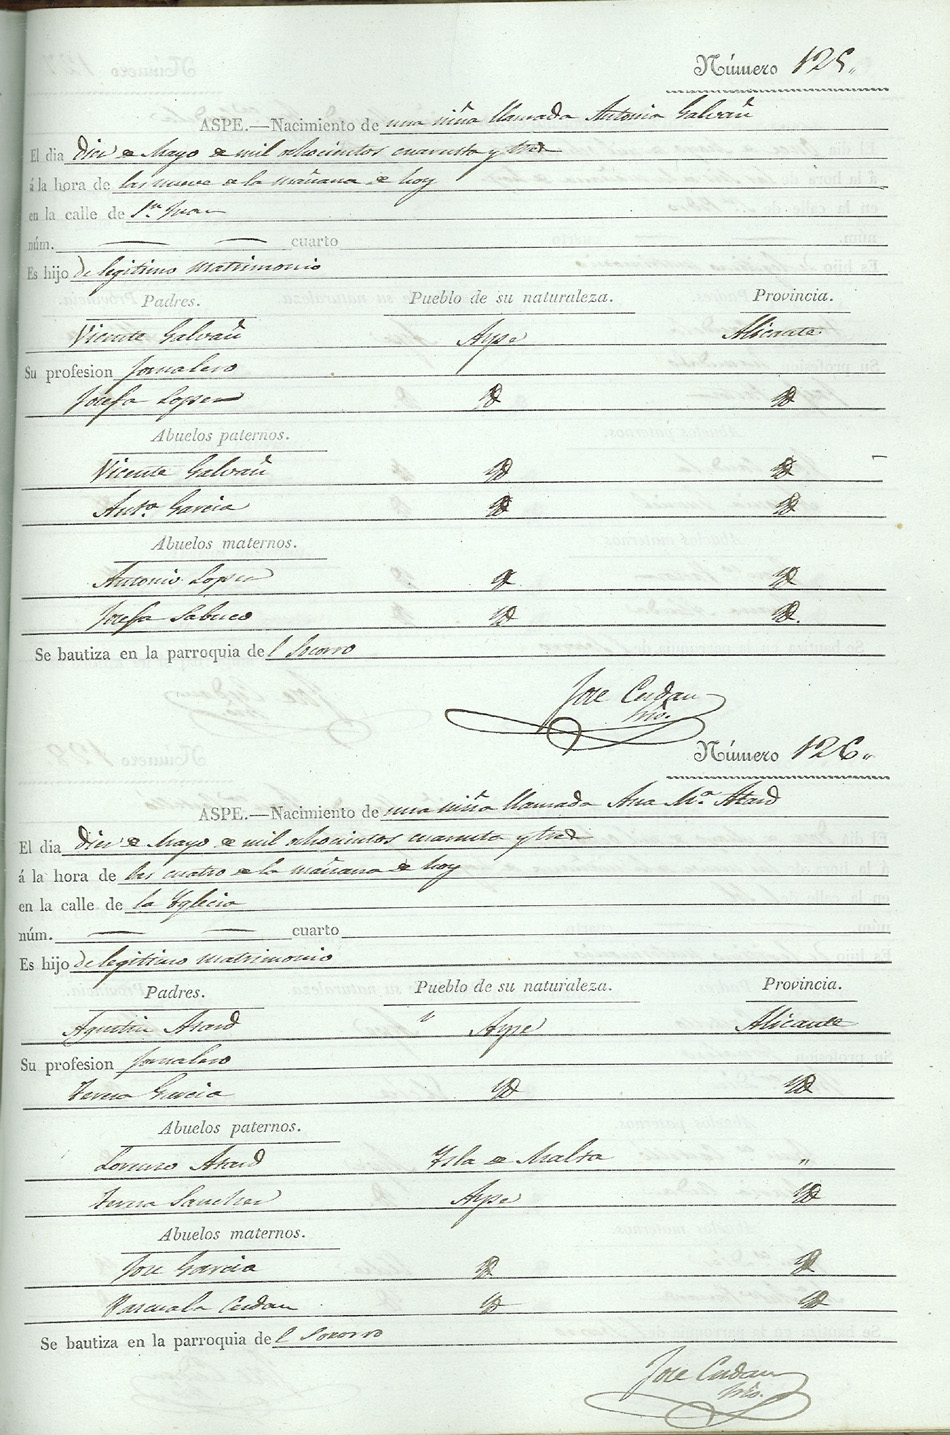 Número 125.
ASPE.—Nacimiento de una niña llamada Antonia Galvañ
El dia diez de Mayo de mil ochocientos cuarenta y tres
á la hora de las nueve de la mañana de hoy
en la calle de Sn Juan
núm. cuarto
Es hijo de legitimo matrimonio
Padres. Pueblo de su naturaleza. Provincia.
Vicente Galvañ Aspe Alicante
Su profesion jornalero
Josefa Lopez Yd Yd
Abuelos paternos.
Vicente Galvañ Yd Yd
Anta. Garcia Yd Yd
Abuelos maternos.
Antonio Lopez Yd Yd
Josefa Sabuco Yd Yd.
Se bautiza en la parroquia del Socorro
Jose Cerdan
Número 126.
ASPE.—Nacimiento de una niña llamada Ana Ma. Azard
El dia diez de Mayo de mil ochocientos cuarenta y tres
á la hora de las cuatro de la mañana de hoy
en la calle de la Yglecia
núm. cuarto
Es hijo de legitimo matrimonio
Padres. Pueblo de su naturaleza. Provincia.
Agustin Azard Aspe Alicante
Su profesion jornalero
Teresa Garcia Yd Yd
Abuelos paternos.
Lorenzo Azard Ysla de Malta "
Teresa Sanchez Aspe Yd
Abuelos maternos.
Jose Garcia Yd Yd
Pascuala Cerdan Yd Yd
Se bautiza en la parroquia del Socorro
Jose Cerdan